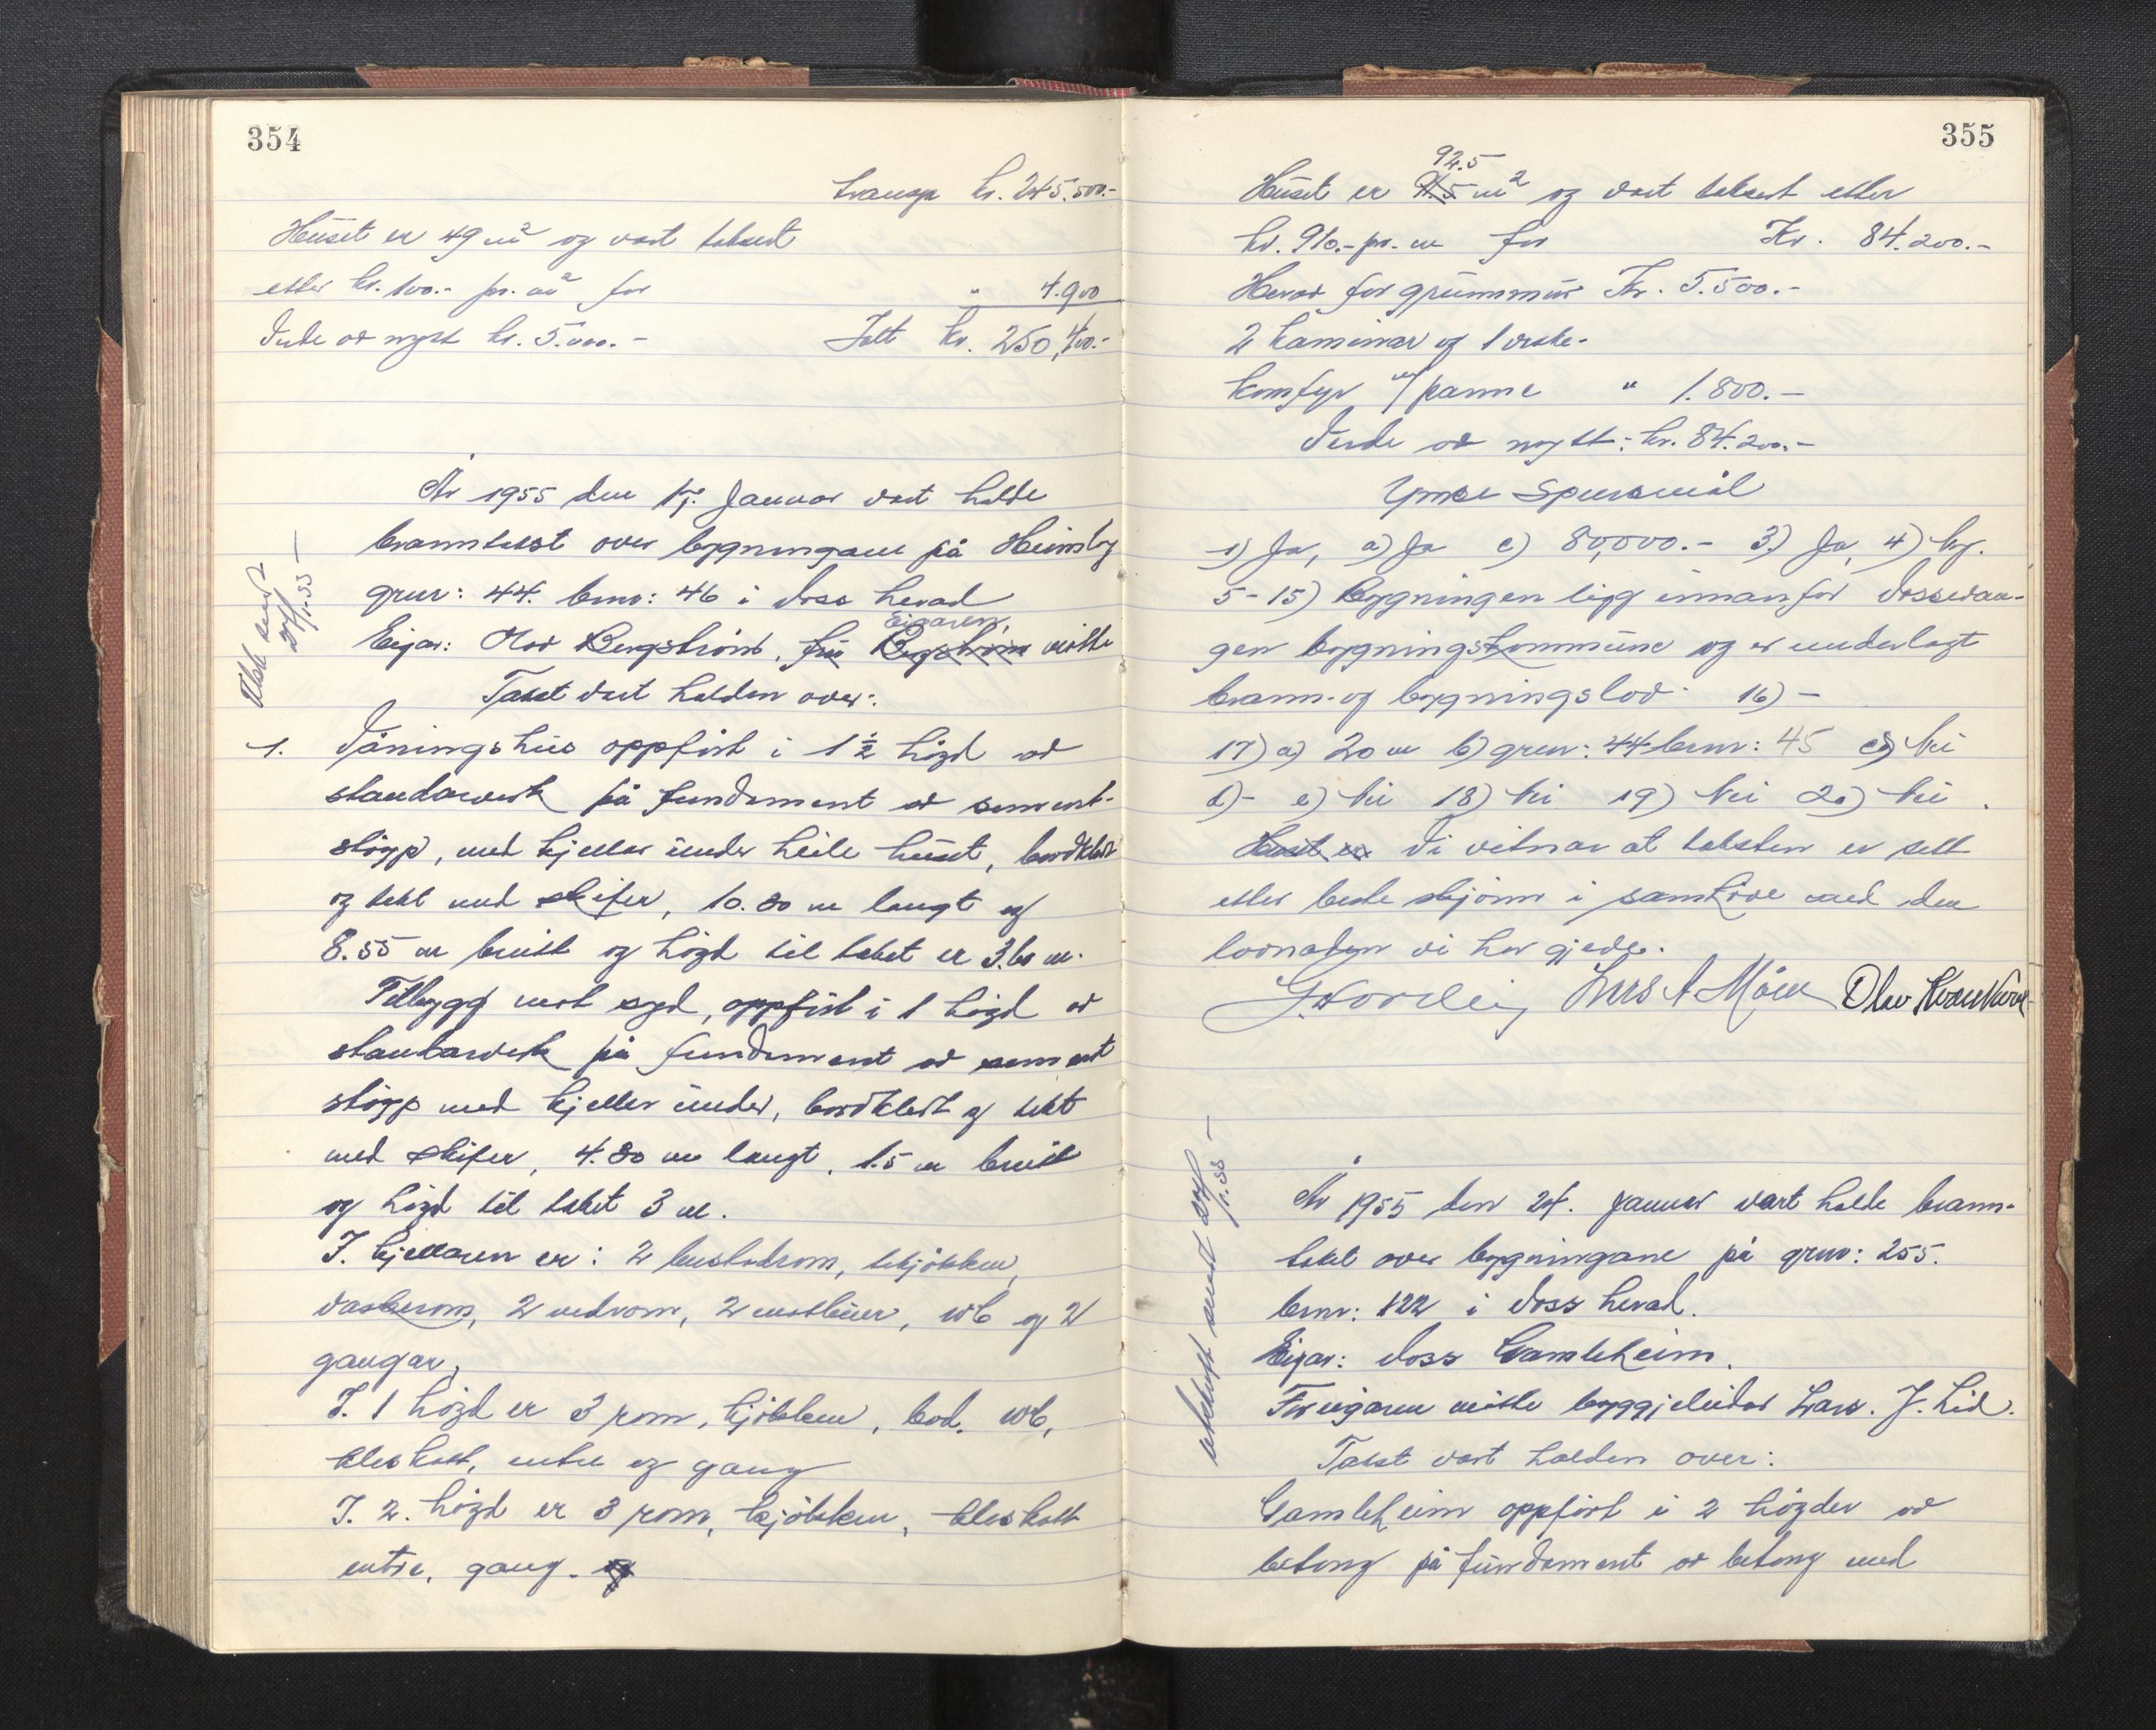 354
transp kr. 245.500.-
Huset er 49 m² og vart taksert
etter kr. 100.- pr. m² for " 4.900
Verde av nytt kr. 5.000.- Ialt kr. 250,400.-
År 1955 den 17. Januar vart halde
branntakst over bygningane på Heimly
gnr: 44. bnr: 46 i Voss herad
Eigar: Olav Bergström, fru Bergström Eigaren møtte
Takst vart halden over:
Utskr. send 24/1-55 -
1. Våningshus oppført i 1 ½ høgd av
standarverk på fundament av sement-
støyp, med kjellar under heile huset, bordkledt
og tekt med skifer, 10.80 m langt og
8.55 m breitt og høgd til taket er 3.60 m.
Tilbygg mot syd, oppført i 1 høgd av
standarverk på fundament av sement
støyp med kjeller under, bordkledt og tekt
med skifer, 4.80 m langt, 1.5 m breitt
og høgd til taket 3 m.
I. kjellaren er: 2 kjøkken,
vaskerom, 2 vedrom, 2 matbuer, wc og 2
gangar,
I. 1 høgd er 3 rom, kjøkken, bod. wc,
kleskott, entre og gang
I. 2. høgd er 3 rom, kjøkken, kleskott
entre, gang. og
355
Huset er 91.5 92.5 m² og vart taksert etter
kr. 910.- pr. m for Kr. 84.200.-
Herav for grunnmur Kr. 5.500.-
2 kaminar og 1 vaske-
komfyr m/panne " 1.800.-
Verde av nytt: kr. 84.200.-
Ymse Spursmål
1) Ja, a) Ja c) 80,000.- 3.) Ja, 4)
5-15) Bygningen ligg innanfor Vossevan-
gen bygningskommune og er underlagt
brann- og bygningslov. 16) -
17) a) 20 m b) gnr: 44 bnr: 45 c) Nei
d) - e) Nei 18) Nei 19) Nei 20) Nei.
Huset er Vi vitnar at taksten er sett
etter beste skjønn i samhøve med den
lovnaden vi har gjeve.
Lars A Møen Olav
År 1955 den 24. januar vart halde brann-
takst over bygningane på gnr: 255.
bnr: 122 i Voss herad.
Eigar: Voss Gamleheim.
For eigaren møtte byggjeleidar Lars. J. Lid.
Takst vart halden over:
Utskrift sendt 24/1-55 -
Gamleheim oppført i 2 høgder av
betong på fundament av betong med